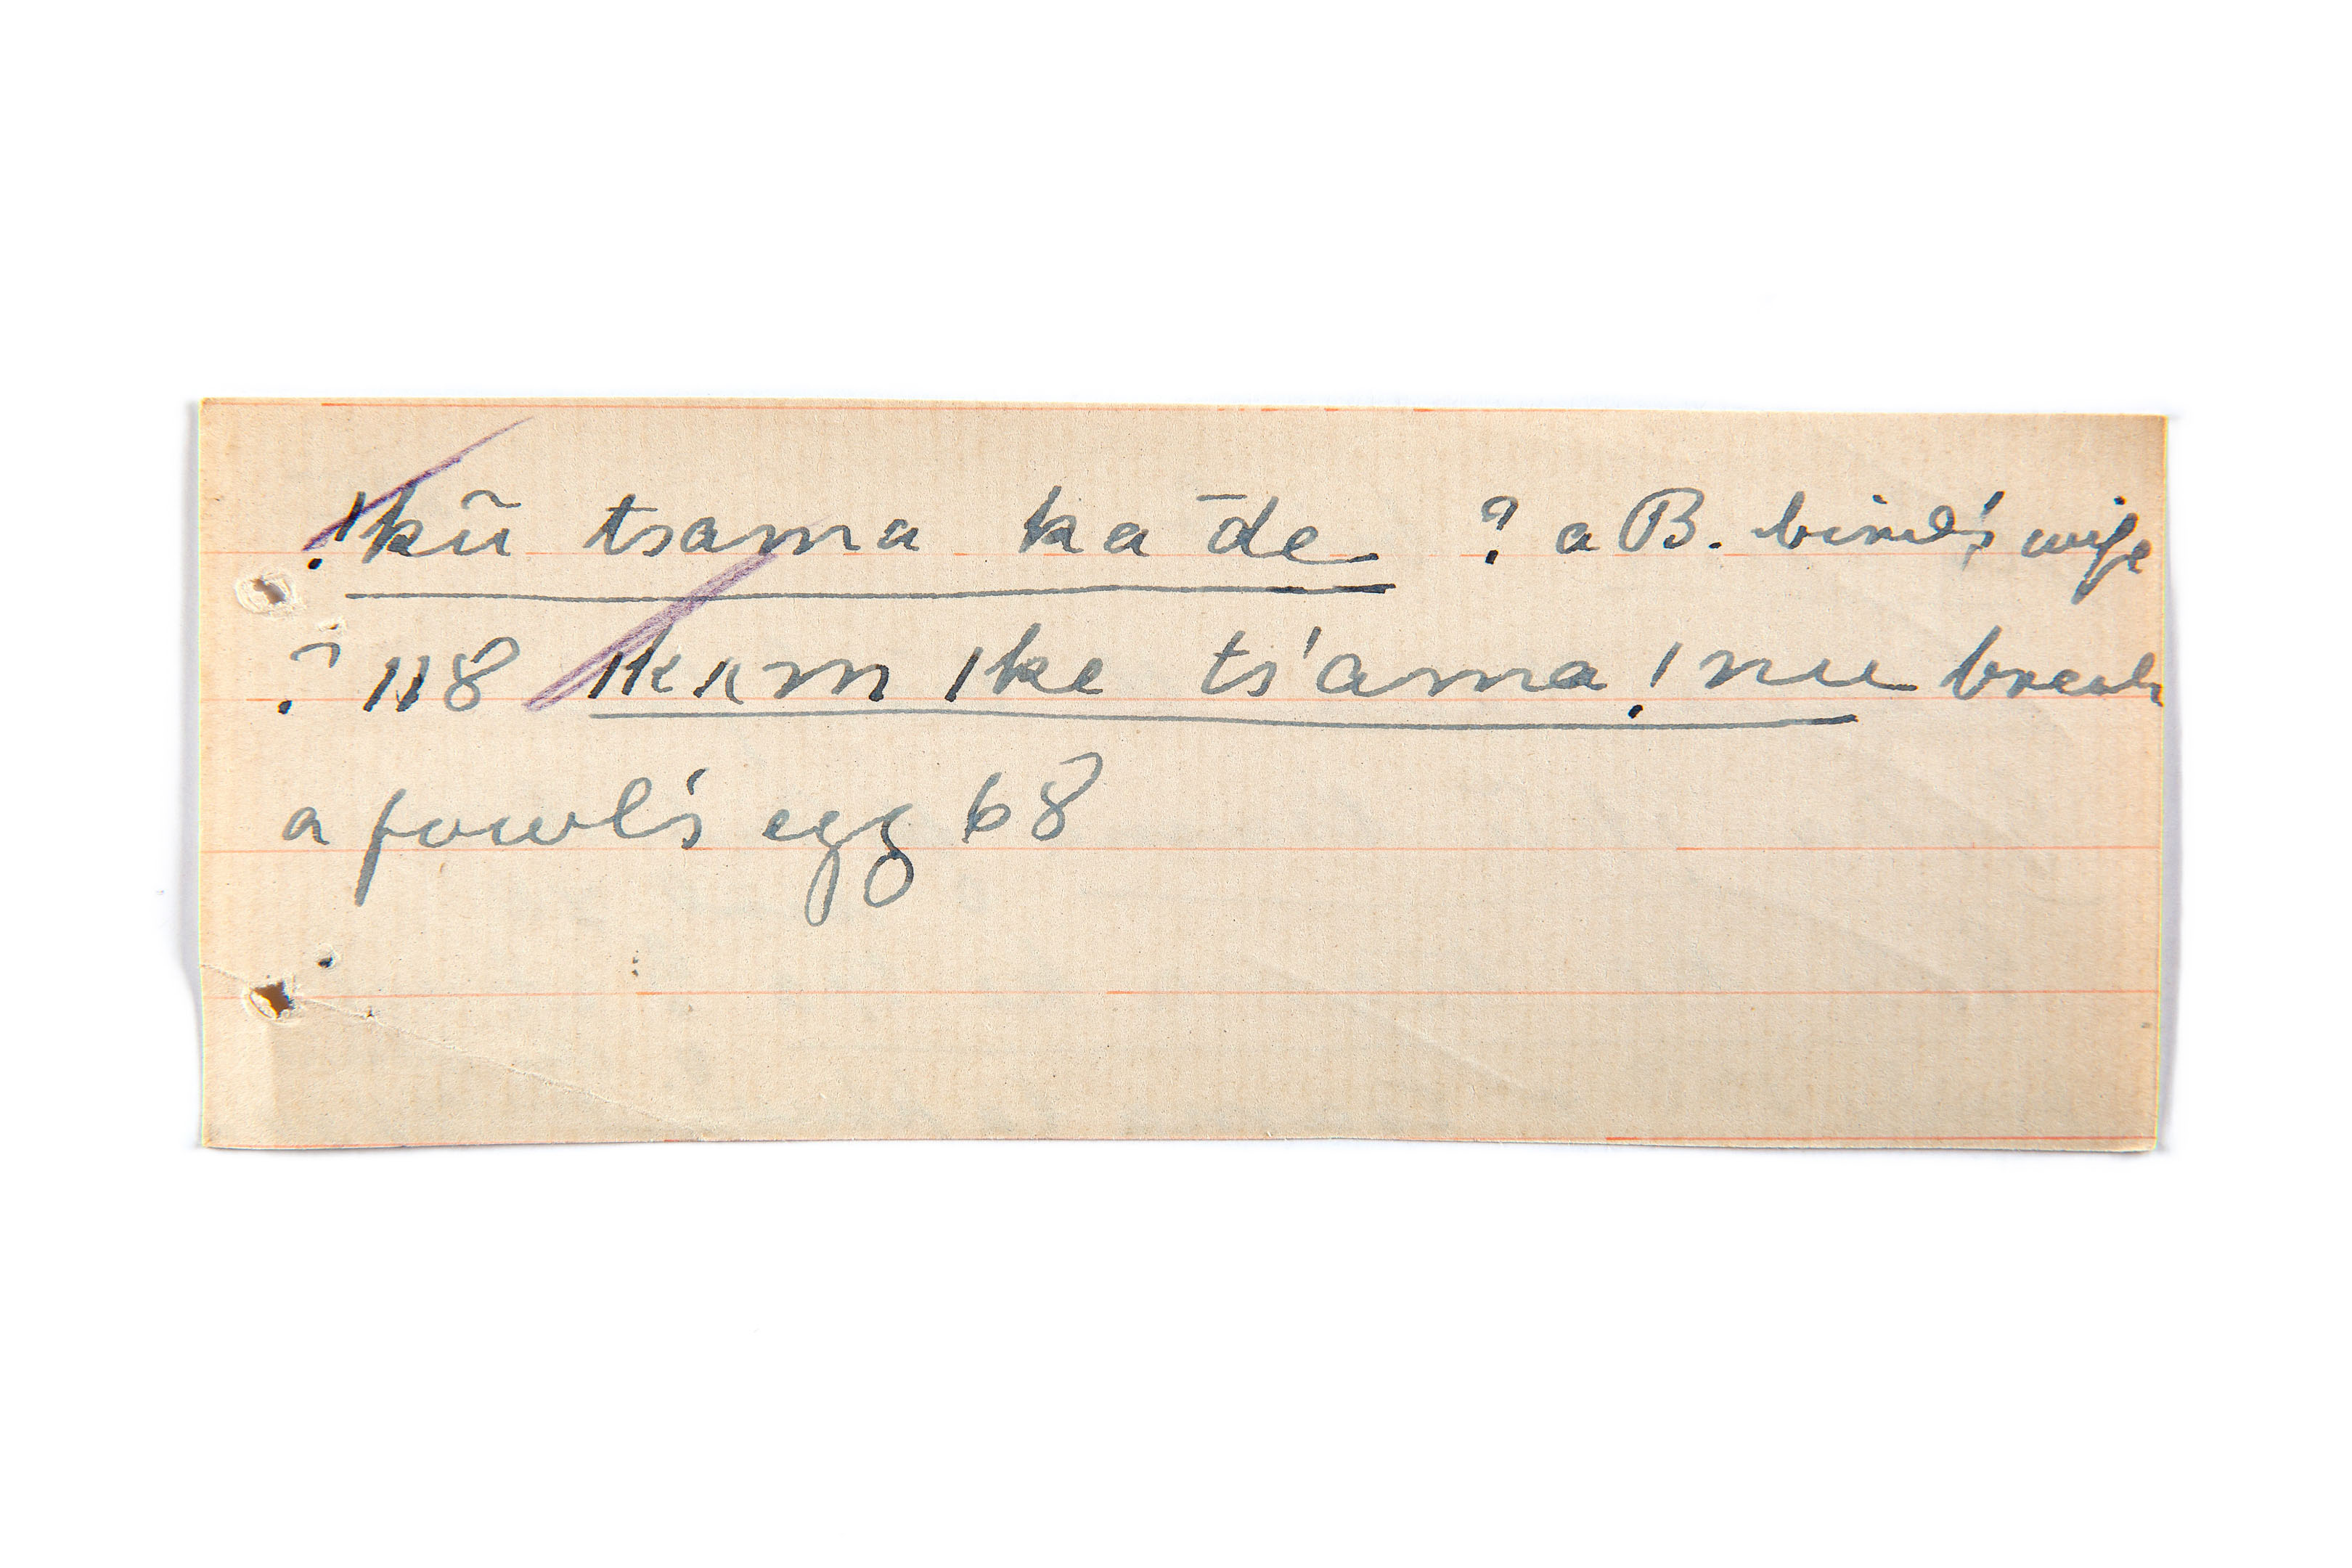 !kũ tsama ka d̄e ? a B. bird's wife
? 118 ıkıım ǀke ts'ama !nu break
a fowl's egg 68